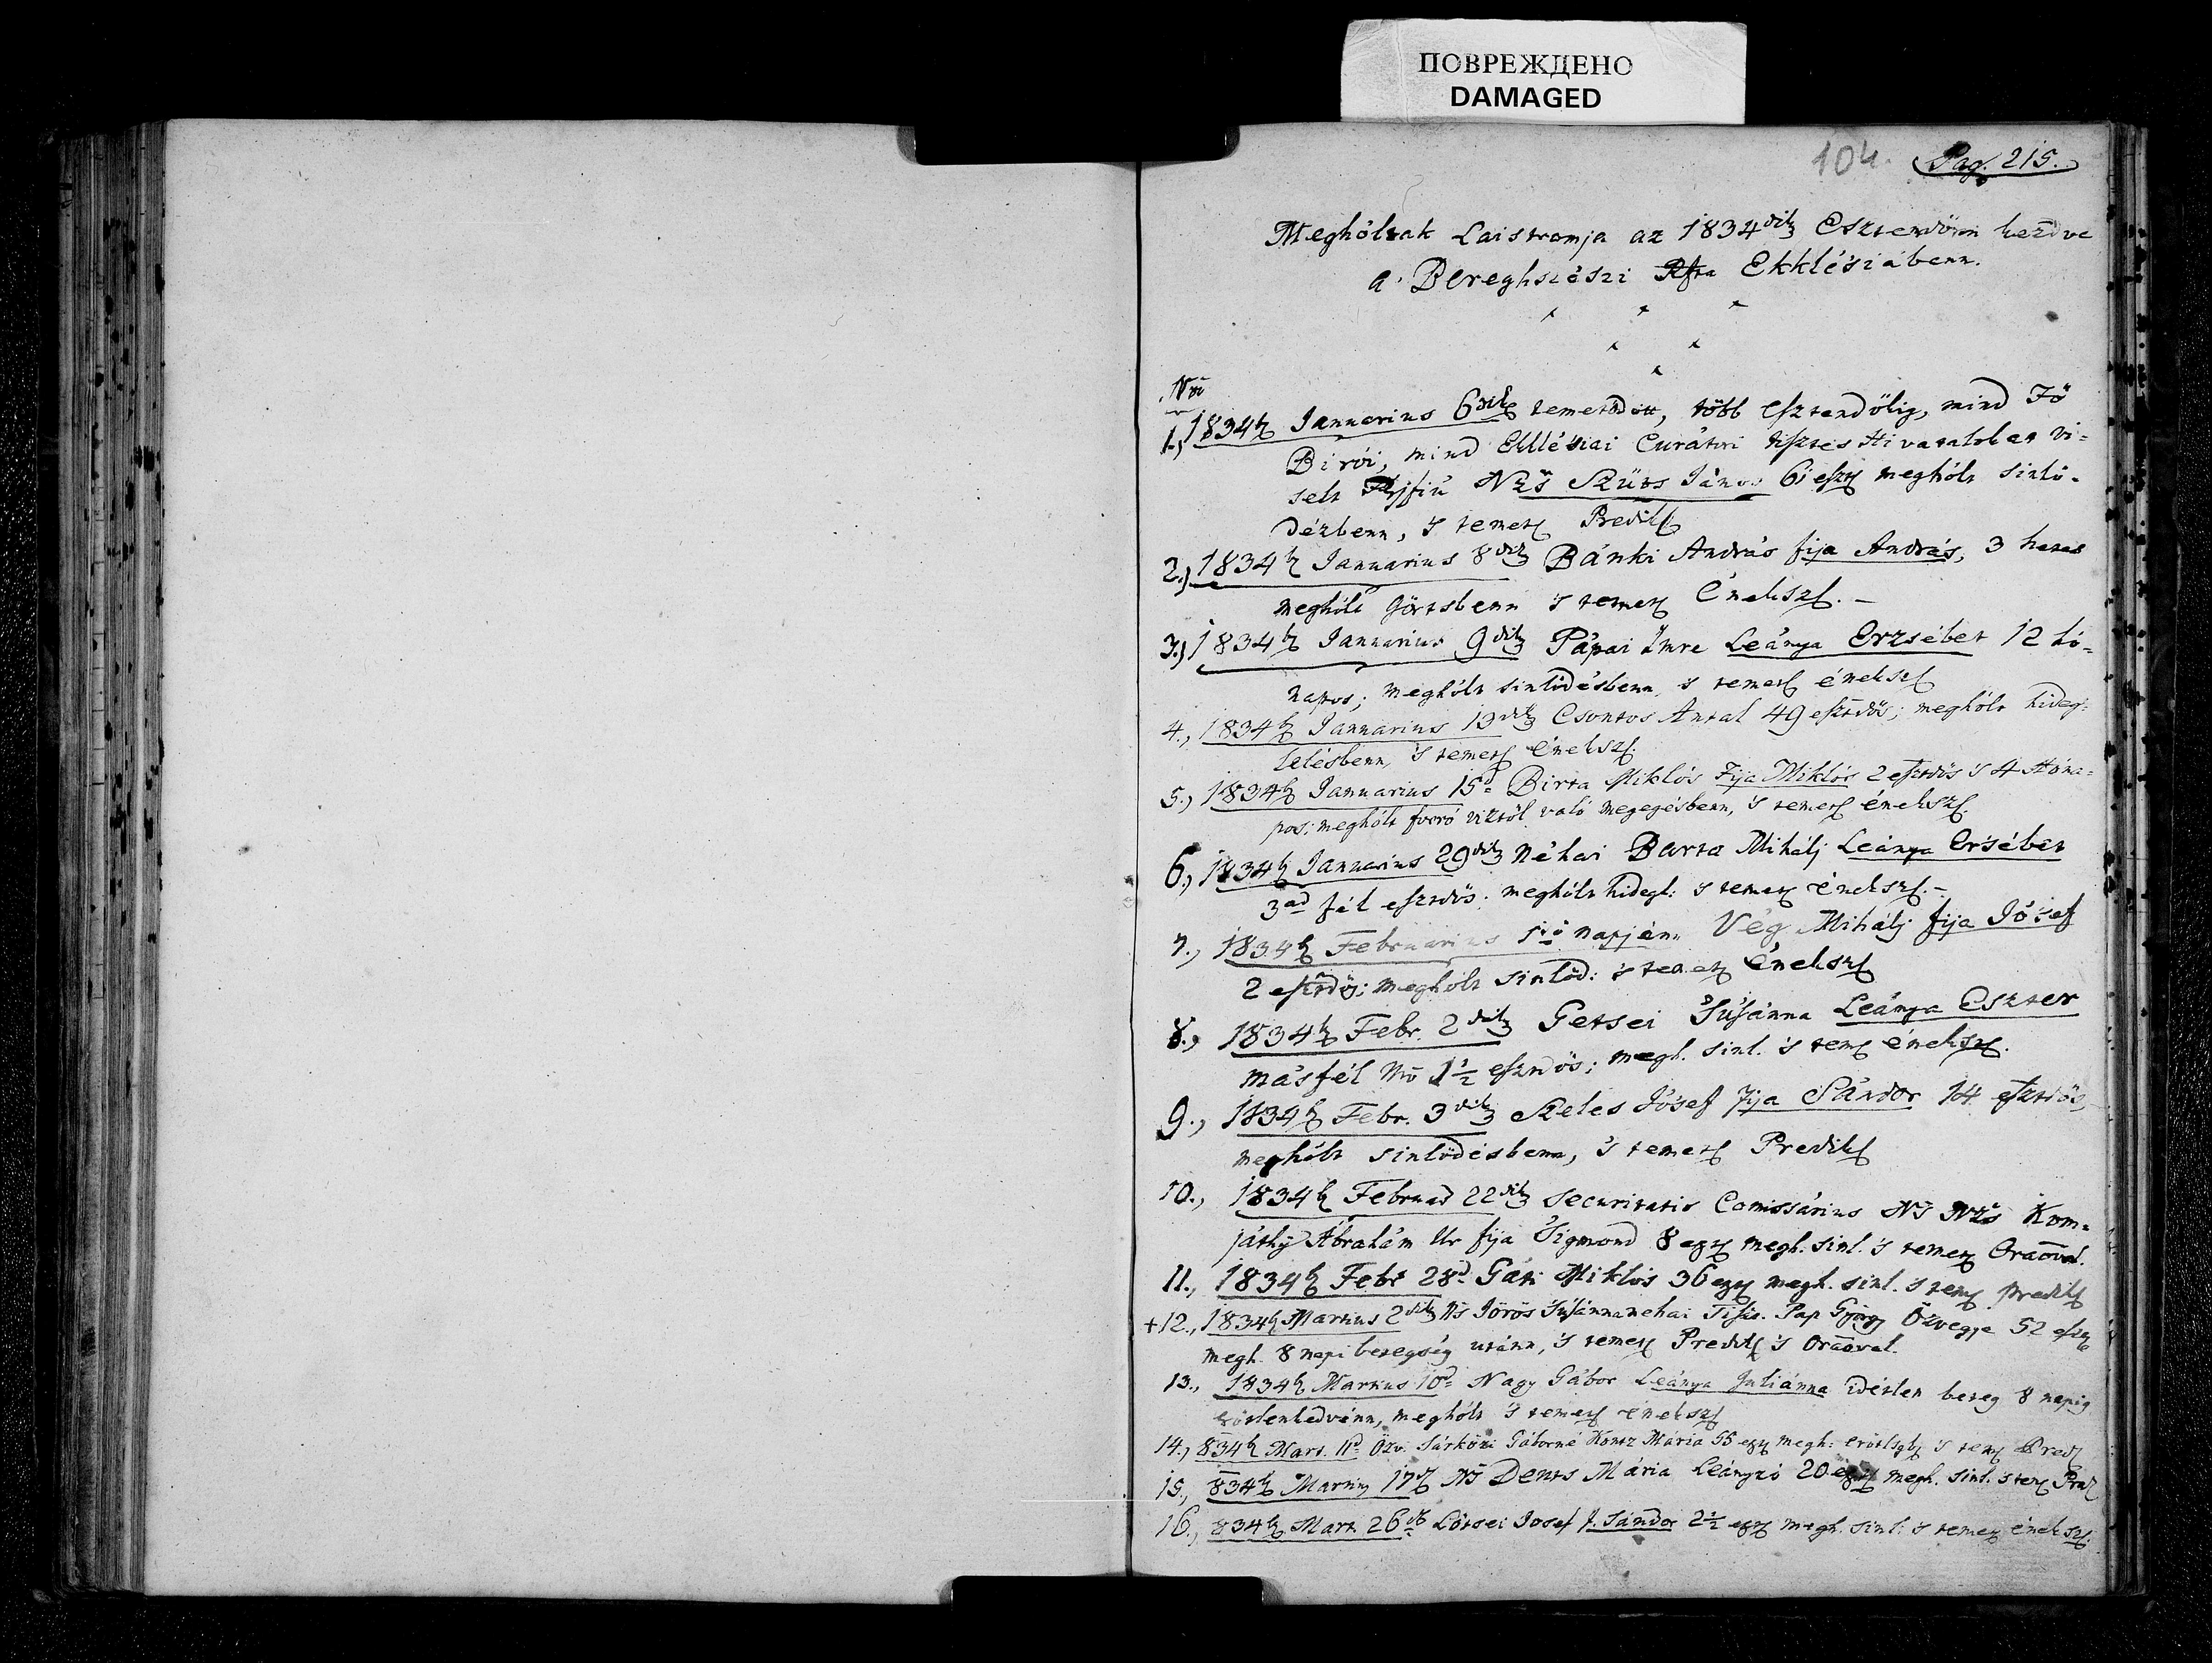 ПОВРЕЖДЕНО
DAMAGED
104.
Pag. 215.
Meghóltak Laistromja az 1834dik Esztendőnn kezdve
a' Bereghszászi Rfta Ekklésiábenn.
Nro
1., 1834b Januarius 6dik temetődött, több esztendőkig, mind Fő
Birói, mind Ekklésiai Curátori tisztes Hivatalokat vi=
selt Férjfiú Nzs Szűts János 61 esz meghólt sinlő-
désbenn, 's temet Predik
2.) 1834b Januarius 8dik Bánki András fija András, 3 hetes
meghólt görtsbenn 's temet Éneksz. -
3.) 1834b Januarius 9dik Pápai Imre Leánya Erzsébet 12 hó=
napos; meghólt sinlődésbenn, 's temet éneksz
4., 1834b Januarius 13dik Csontos Antal 49 esztdős; meghólt hideg=
lelésbenn, 's temet éneksz.
5., 1834b Januarius 15d Birta Miklós Fija Miklós 2 esztdős 's 4 Hóna=
pos; meghólt forró viztől való megegésbenn, 's temet éneksz.
6., 1834b Januarius 29dik Néhai Barta Mihálj Leánya Ersébet
3ad fél esztdős; meghólt hidegl: 's temet éneksz. -
7., 1834b Februarius 1ső napjánn Vég Mihálj fija Jó'sef
2 esztdős; meghólt sinlőd: 's temet Éneksz
8., 1834b Febr. 2dik Getsei 'Su'sánna Leánya Eszter
másfél No 1½ esztdős; megh. sinl. 's tem éneksz.
9., 1834b Febr. 3dik Szeles Jó'sef Fija Sándor 14 esztdős,
meghólt sinlődésbenn, 's temet Predik
10., 1834b Februar 22dik Securitatis Comissárius NS Nzs Kom=
játhy Ábrahám Ur fija 'Sigmond 8 esz megh. sinl. 's temet Oraoval.
11., 1834b Febr 28d Gáti Miklós 36 esz megh. sinl. 's tem predik
+12., 1834b Martius 2dik NS Vörös 'Su'sánna néhai Tiszt. Pap György Özvegye 52 esz
megh. 8 napi betegség utánn, 's temet Predik 's Oraoval.
13., 1834b Martius 10d Nagy Gábor Leánya Juliánna idétlen beteg 8 napig
erőtlenkedvénn, meghólt 's temet éneksz
14., 834b Mart. 11d Özv. Sárközi Gáborné Kontz Mária 55 esz megh: erőtlsgb 's tem Pred
15., 834b Martius 17d NS Dents Mária Leányzó 20 esz megh. sinl. 's tem Pred
16., 834b Mart 26d Lőtsei Josef f. Sándor 2½ esz megh. sinl: 's temet éneksz.